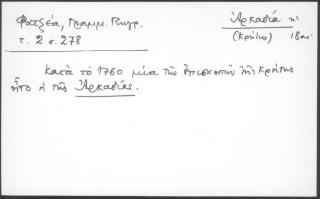 Φατζέα, Γραμμ. Κυρ.
τ. 2 σ. 278
Ἀρκαδία
(Κρήτης) 18 αι.
κατὰ τό 1760 μία τῆς ἐπισκοπῶν τῆς Κρήτης
ἦτο ἡ τῆς Ἀρκαδίας.